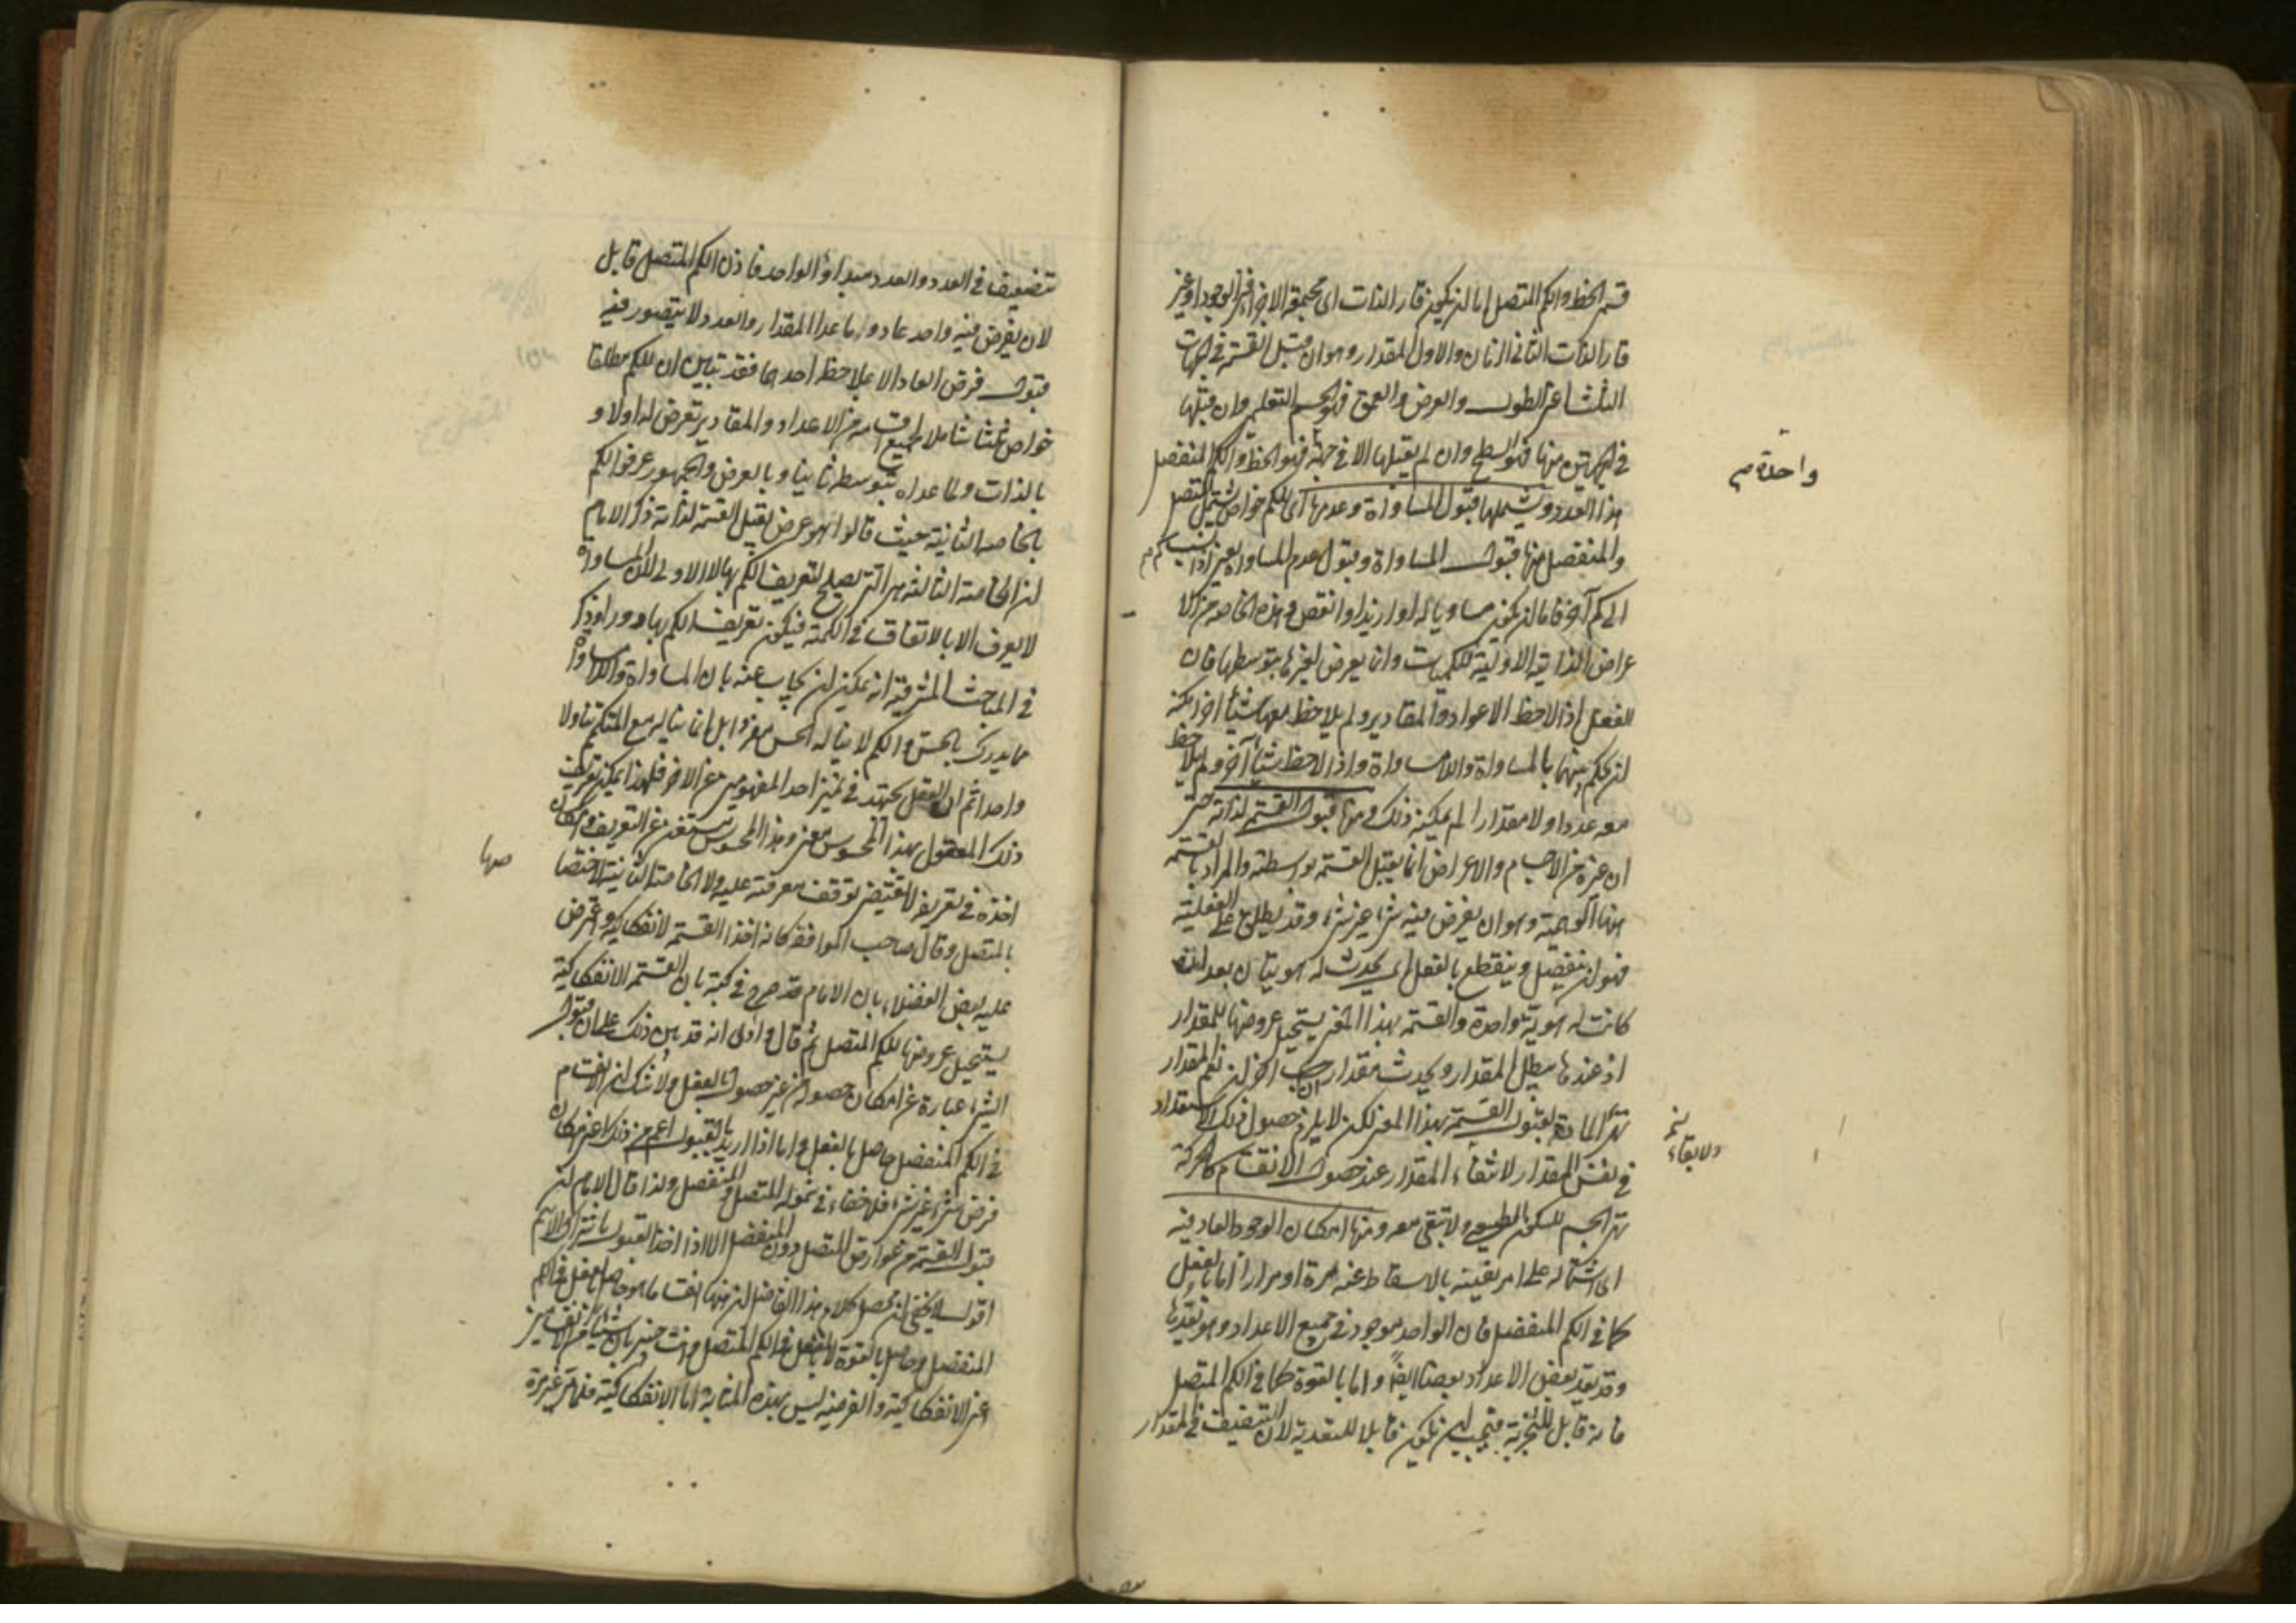 قسم الخط والكم المتصل اما ان يكون قار الذات اى مجتمعة الاجزاء فى الوجود او غير
قار الذات الثانى الزمان والاول المقدار وهو ان قبل القسمة فى الجهات
الثلث اعنى الطول والعرض والعمق فهو الجسم التعليمى وان قبلها
فى الجهتين منها فهو السطح وان لم يقبلها الا فى جهة فهو الخط والكم المنفصل
واحدة صح
هذا العدد ويشملها قبول المساواة وعدمها اى للكم خواص يشمل المتصل
والمنفصل منها قبول المساواة وقبول عدم المساواة يعنى اذا نسب كم
الى كم آخر فاما ان يكون مساويا له او ازيد او انقص وهذه الخاصة من الا
عراض الذاتية الاولية للكميات وانما يعرض لغيرها بتوسطها فان
العقل اذا لاحظ الاعداد والمقادير ولم يلاحظ معها شيئا آخر امكنه
ان يحكم بينهما بالمساواة واللامساواة واذا لاحظ شيئا آخر ولم يلاحظ
معه عددا ولا مقدارا لم يمكنه ذلك ومنها قبول القسمة لذاته حتى
ان غيره من الاجسام والاعراض انما يقبل القسمة بواسطته والمراد بالقسمة
ههنا الوهمية وهو ان يفرض فيه شىء غير شىء وقد يطلق على الفعلية
فهو ان ينفصل وينقطع بالفعل اى يحدث له هويتان بعد ان
كانت له هوية واحدة والقسمة بهذا المعنى يستحيل عروضها للمقدار
اذ عندها يبطل المقدار ويحدث مقداران آخران نعم المقدار
يهيئ المادة لقبول القسمة بهذا المعنى لكن لا يلزم حصول ذلك الاستعداد
ولا بقاء
فى نفس المقدار لانتفاء المقدار عند حصول الانقسام كالحركة
تهيئ الجسم للسكون الطبيعى ولا تبقى معه ومنها امكان الوجود العاد فيه
اى اشتماله على امر يفنيه بالاسقاط عنه مرة او مرارا اما بالفعل
كما فى الكم المنفصل فان الواحد موجود فى جميع الاعداد وهو يعدها
وقد يعد بعض الاعداد بعضا ايضا واما بالقوة كما فى الكم المتصل
فانه قابل للتجزية فيجب ان يكون قابلا للتعدية لان التضعيف فى المقدار
تضعيف فى العدد والعدد مبداؤه الواحد فاذن الكم المتصل قابل
لان يفرض فيه واحد عاد وما عدا المقدار والعدد لا يتصور فيه
قبول فرض العاد الا بملاحظة احدهما فقد تبين ان للكم مطلقا
خواص ثلثا شاملا لجميع اقسامه من الاعداد والمقادير تعرض له اولا و
بالذات ولما عداه بتوسطه ثانيا وبالعرض والجمهور عرفوا الكم
بالخاصة الثانية حيث قالوا هو عرض يقبل القسمة لذاته ذكر الامام
ان الخاصة الثالثة هى التى يصلح لتعريف الكم بها لا الاولى لان المساواة
لا يعرف الا بالاتفاق فى الكمية فيكون تعريف الكم بها دورا وذكر
فى المباحث المشرقية انه يمكن ان يجاب عنه بان المساواة واللامساواة
مما يدرك بالحس والكم لا يناله الحس مفردا بل انما يناله مع المتكمم تناولا
واحدا ثم ان العقل يجتهد فى تمييز احد المفهومين عن الآخر فلهذا يمكن تعريف
ذلك المعقول بهذا المحسوس وهذا المحسوس مستغن عن التعريف وامكان
اخذه فى تعريف لا يقتضى توقف معرفته عليه ولا الخاصة الثانية لاختصا
صها
بالمتصل وقال صاحب المواقف كانه اخذ القسمة الانفكاكية واعترض
عليه بعض الفضلاء بان الامام قد صرح فى كتبه بان القسمة الانفكاكية
يستحيل عروضها للكم المتصل ثم قال وارى انه قد بنى ذلك على ان قبول
الشىء عبارة عن امكان حصوله من غير حصوله بالفعل ولا شك ان الانقسام
فى الكم المنفصل حاصل بالفعل واما اذا اريد بالقبول اعم من ذلك اعنى امكان
فرض شىء غير شىء فلا خفاء فى شموله المتصل والمنفصل ولذا قال الامام ان
قبول القسمة من عوارض المتصل دون المنفصل الا اذا اخذ القبول باشتراك الاسم
اقول لا يخفى ان محصل كلام هذا الفاضل ان ههنا انقساما هو حاصل بالفعل فى الكم
المنفصل وحاصل بالقوة لا بالفعل فى الكم المتصل وانت خبير بان شيئا من الانقسامين
اعنى الانفكاكية والفرضية ليس بهذه المثابة اما الانفكاكية